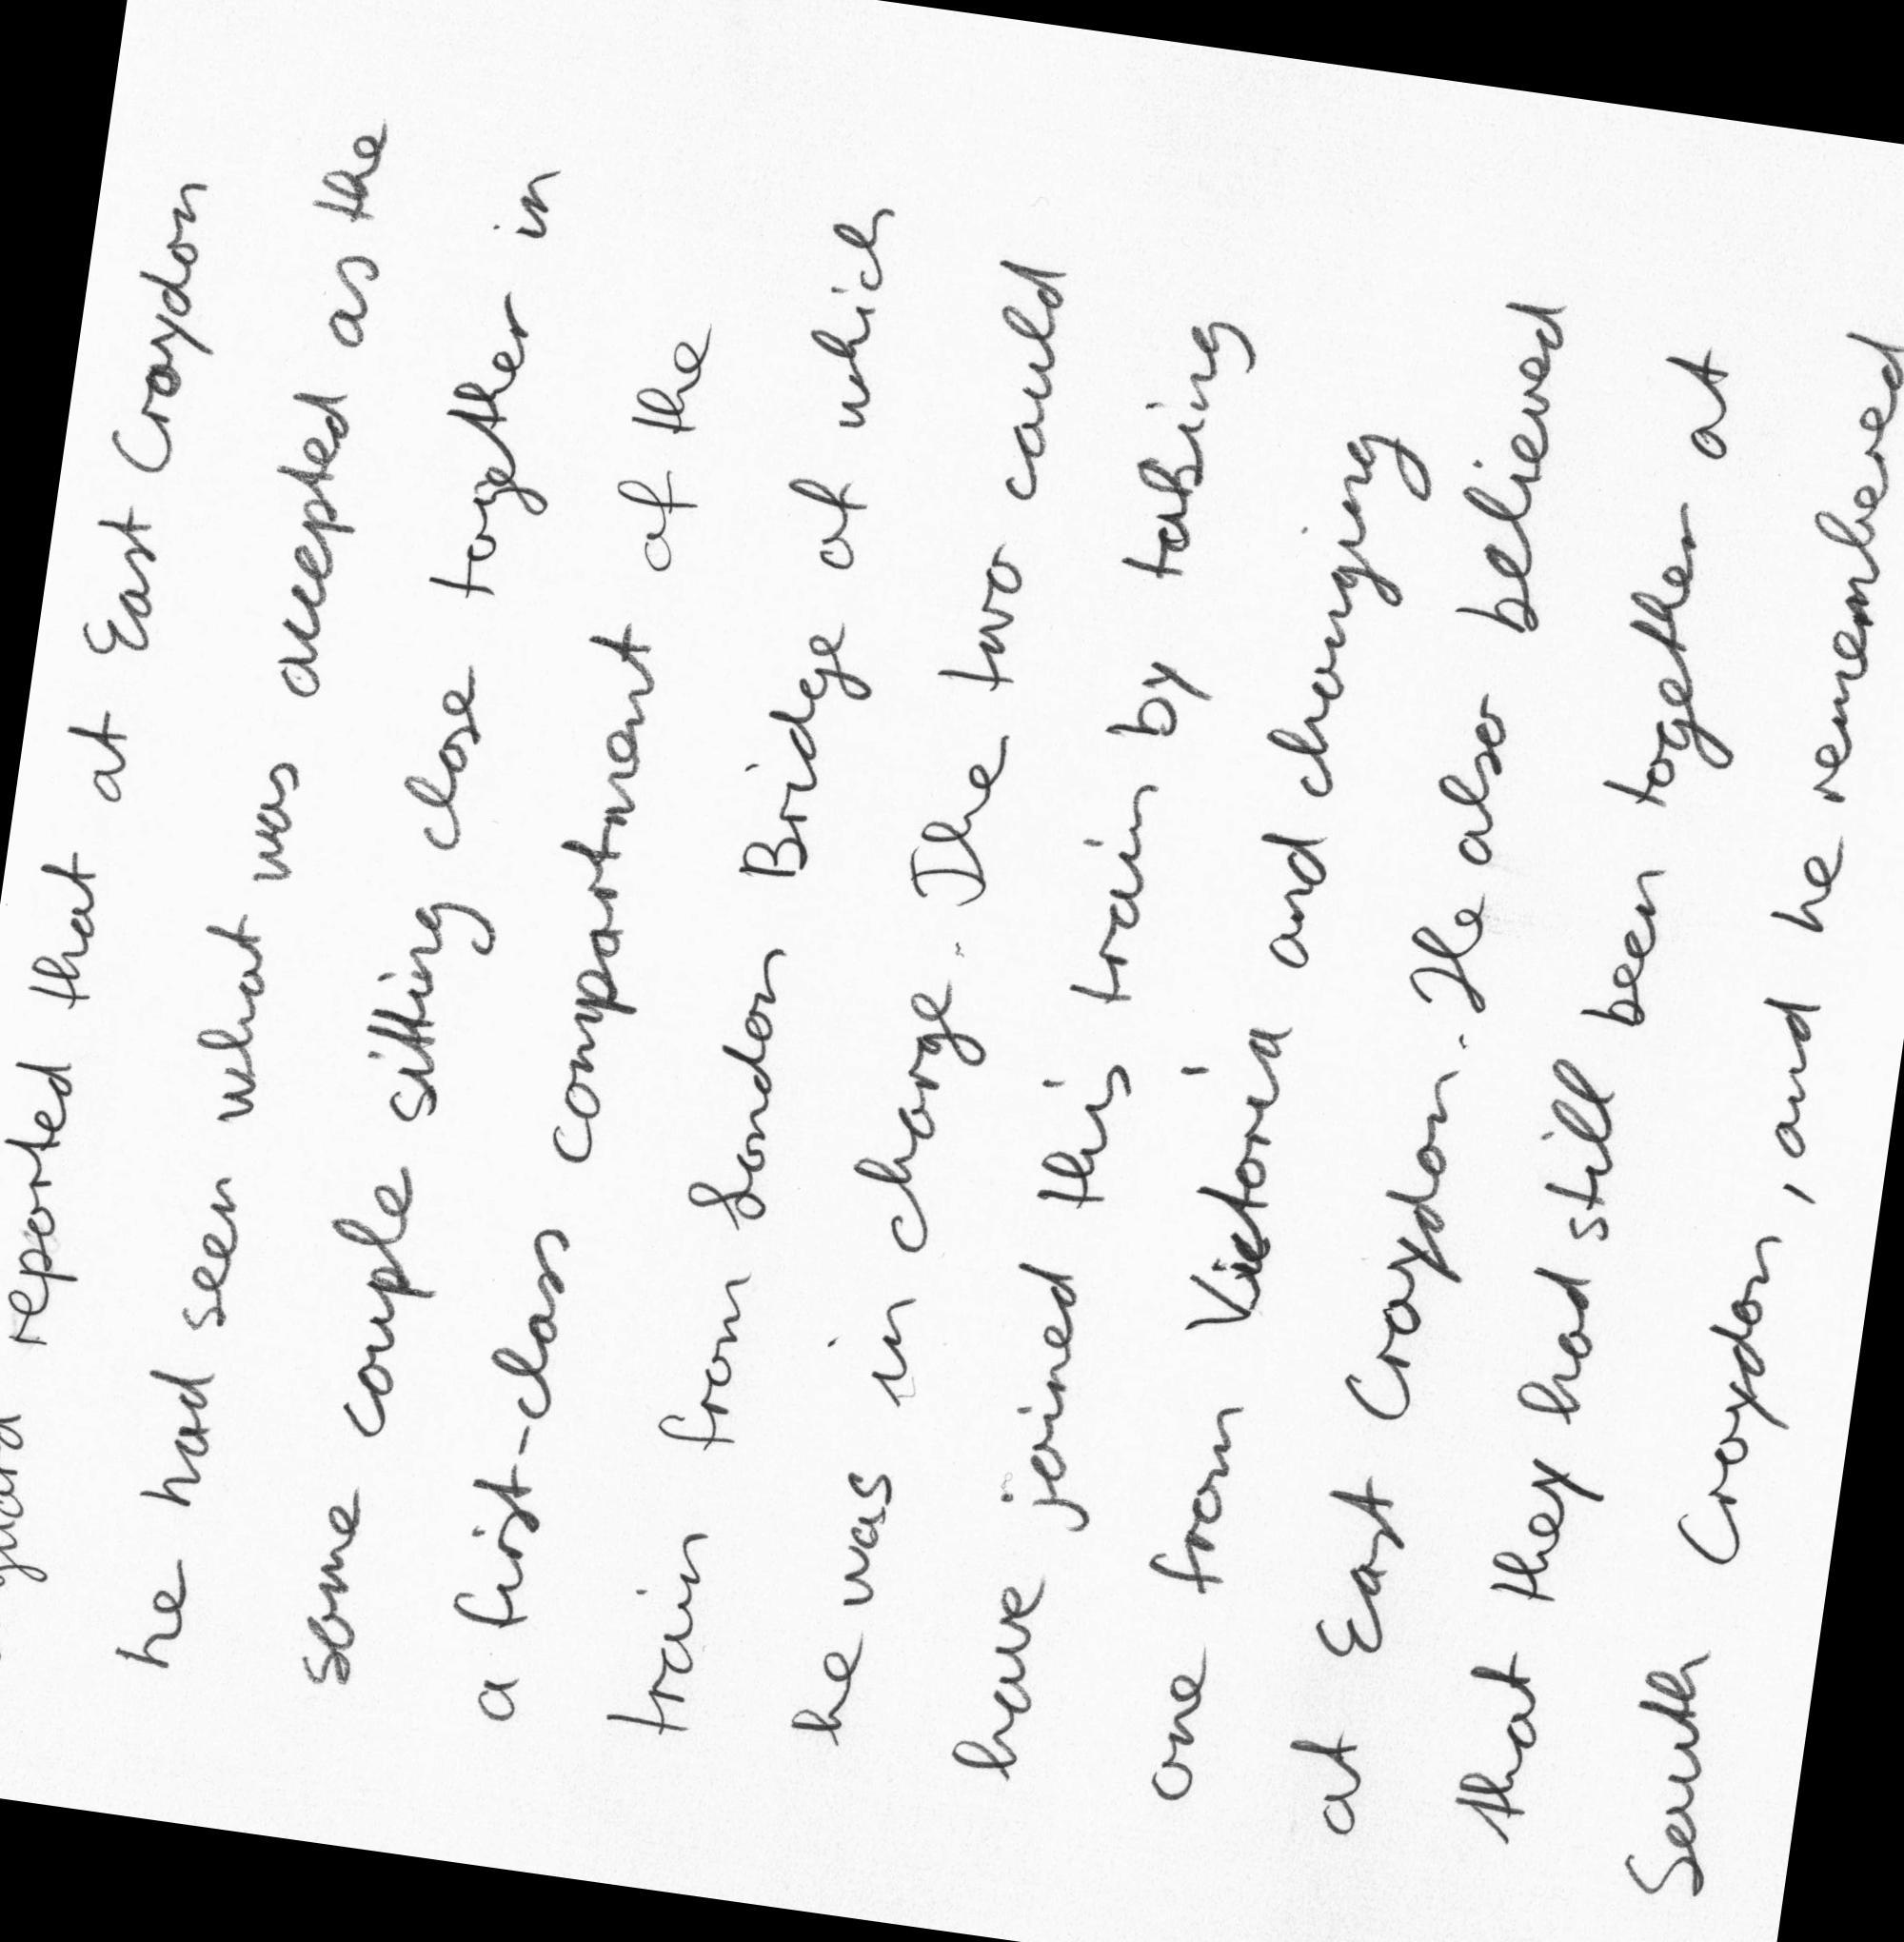 guard reported that at East Croydon
he had seen what was accepted as the
some couple sitting close together in
a first-class compartment of the
train from London Bridge of which
he was in charge. The two could
have joined this train by taking
one from Victoria and changing
at East Croydon. He also believed
that they had still been together at
South Croydon, and he remembered